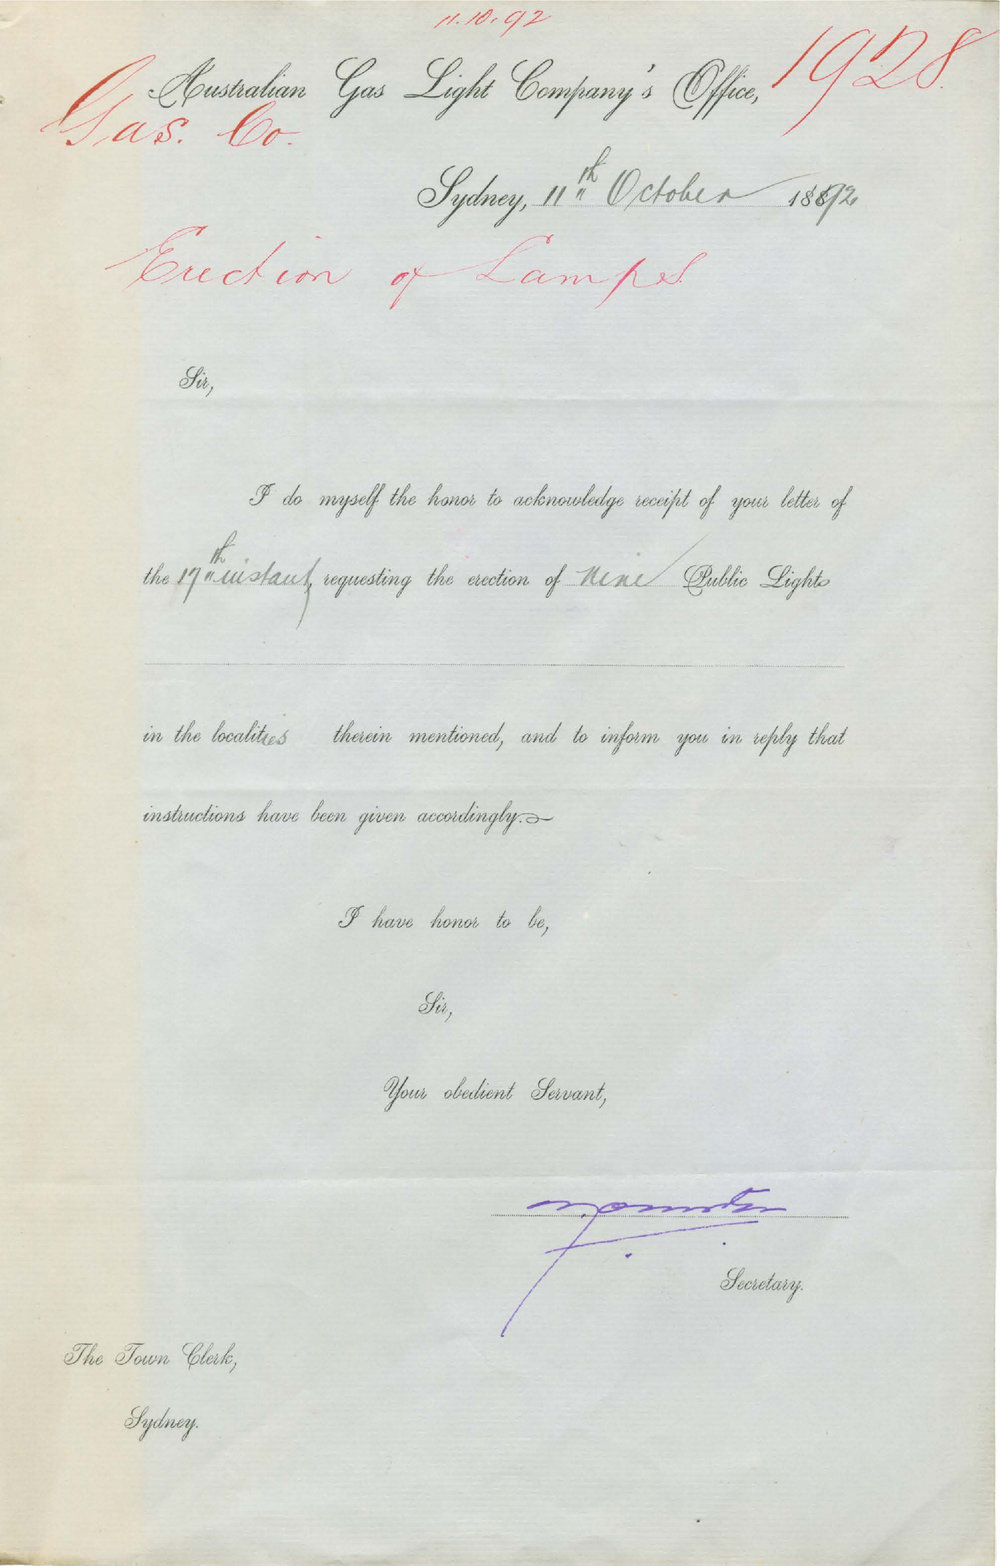 11.10.92
1928.
Australian Gas Light Company's Office,
Gas. Co.
Sydney, 11th October 1892
Erection of Lamps
Sir,
I do myself the honor to acknowledge receipt of your letter of
the 17th instant, requesting the erection of nine Public Lights
in the localities therein mentioned, and to inform you in reply that
instructions have been given accordingly.
I have honor to be,
Sir,
Your obedient Servant,
Secretary.
The Town Clerk,
Sydney.